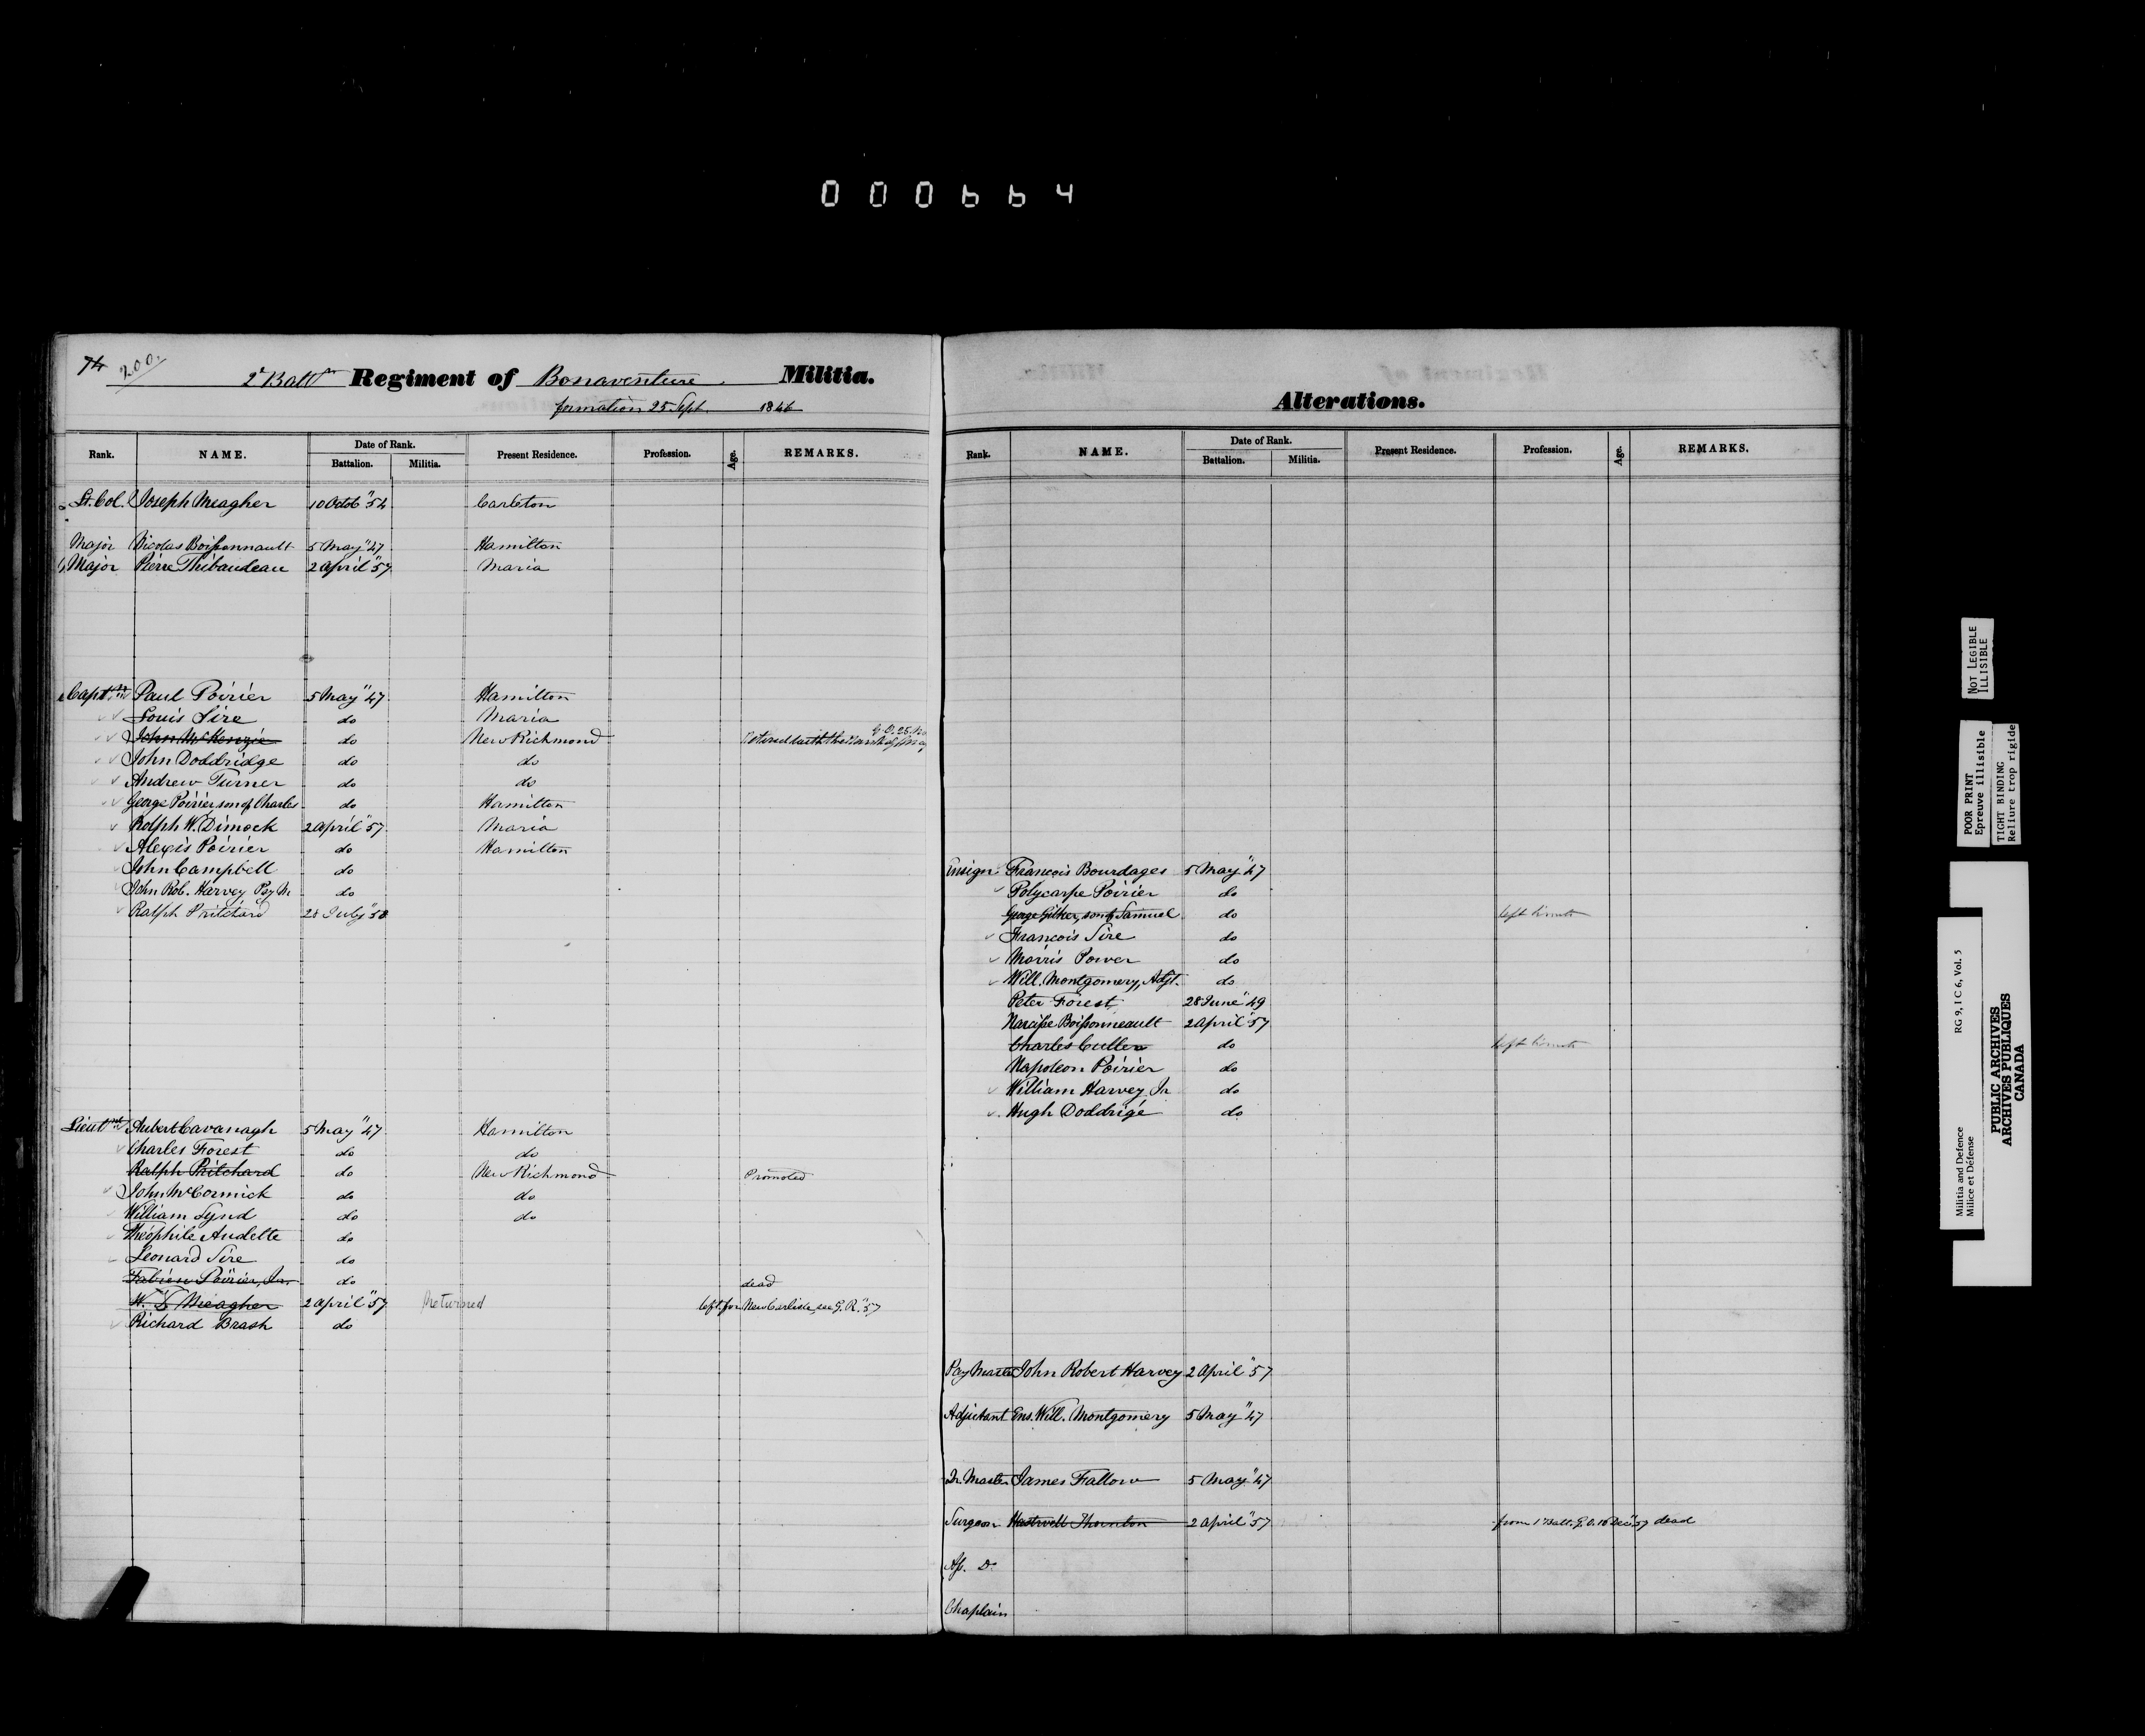 000664
74 200.
2d Battn Regiment of Bonaventure. Militia.
formation 25 Sept. 1846
Rank. NAME. Date of Rank. Battalion. Militia. Present Residence. Profession. Age. REMARKS.
Lt. Col. Joseph Meagher 10 Octob "54 Carleton
Major Nicolas Boissonnault 5 May "47 Hamilton
Major Pierre Thibaudeau 2 April "57 Maria
Captns Paul Poirier 5 May "47 Hamilton
Louis Sire do Maria
John McKenzie do New Richmond Retired with the rank of G.O. 25
John Doddridge do do
Andrew Turner do do
George Poirier son of Charles do Hamilton
Rolph W. Dimock 2 April "57 Maria
Alexis Poirier do Hamilton
John Campbell do
John Rob. Harvey Pay M. do
Ralph Pritchard 28 July "58
Lieutnts Aubert Cavanagh 5 May "47 Hamilton
Charles Forest do do
Ralph Pritchard do New Richmond Promoted
John McCormick do do
William Lynd do do
Théophile Audette do
Leonard Sire do
Fabien Poirier, Jr. do dead
Meagher 2 April "57 Returned left for New Carlisle, see G.R. "57
Richard Brash do
Alterations.
Rank. NAME. Date of Rank. Battalion. Militia. Present Residence. Profession. Age. REMARKS.
Ensign François Bourdages 5 May "47
Polycarpe Poirier do
George Gilker, son of Samuel do left limits
François Sire do
Morris Power do
Will. Montgomery, Adjt. do
Peter Forest 28 June "49
Narcisse Boissonneault 2 April "57
Charles Cullen do left limits
Napoleon Poirier do
William Harvey Jr do
Hugh Doddrige do
Pay Master John Robert Harvey 2 April "57
Adjutant Ens. Will. Montgomery 5 May "47
Qr. Master James Fallow 5 May "47
Surgeon Thornton 2 April "57 from 1st Batt. G.O. 10 Dec "57 dead
As. Do
Chaplain
NOT LEGIBLE
ILLISIBLE
POOR PRINT
Epreuve illisible
TIGHT BINDING
Reliure trop rigide
Militia and Defence RG 9, I C 6, Vol. 5
Milice et Défense
PUBLIC ARCHIVES
ARCHIVES PUBLIQUES
CANADA